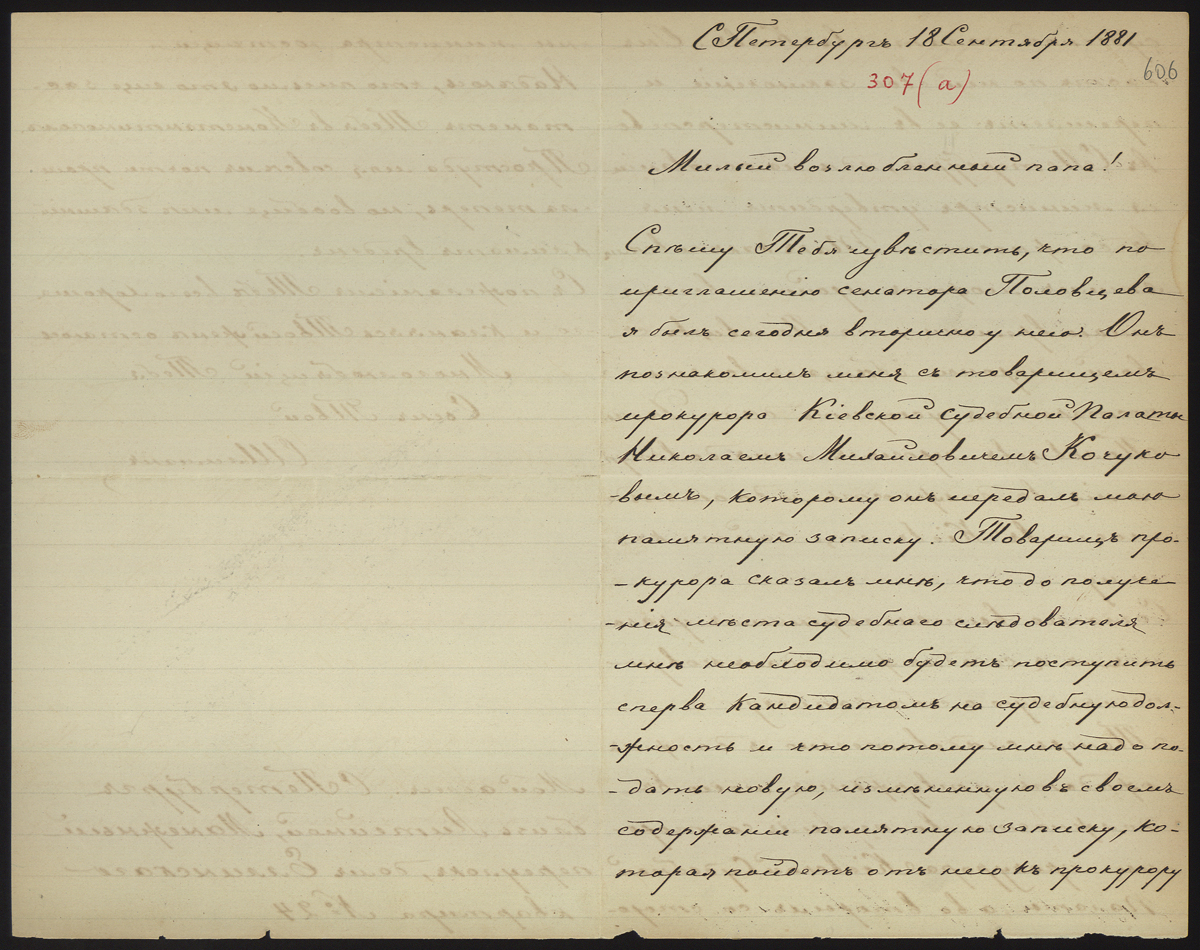 СПетербургъ 18 Сентября 1881
307 (а)
606
Милый возлюбленный папа!
Спѣшу Тебя извѣстить, что по
приглашенію сенатора Половцева
я былъ сегодня вторично у него. Онъ
познакомилъ меня съ товарищемъ
прокурора Кіевской Судебной Палаты
Николаемъ Михайловичемъ Кочуко-
-вымъ, которому онъ передалъ мою
памятную записку. Товарищъ про-
-курора сказалъ мнѣ, что до получе
-нія мѣста судебнаго слѣдователя
мнѣ необходимо будетъ поступить
сперва кандидатомъ на судебную дол-
-жность и что потому мнѣ надо по-
-дать новую, измѣненную въ своемъ
содержаніи памятную записку, ко-
торая пойдетъ отъ него къ прокурору